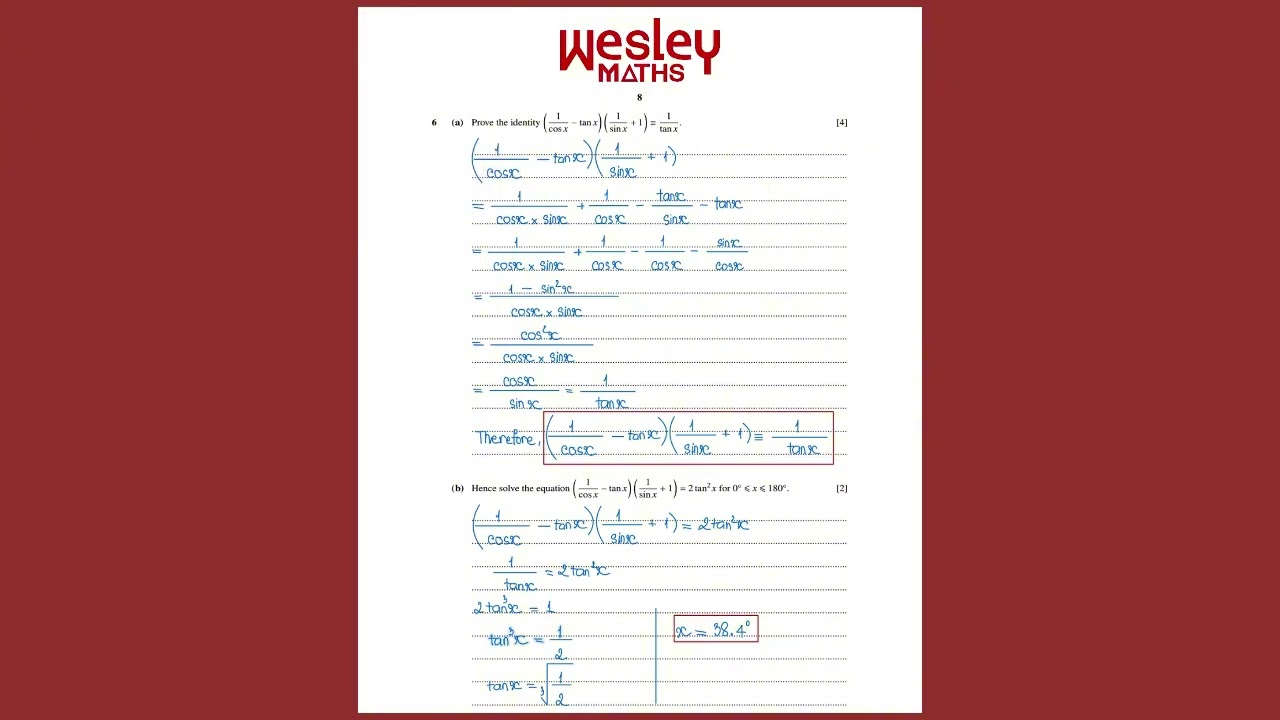 Wesley
MATHS
8
6 (a) Prove the identity (1/cos x − tan x)(1/sin x + 1) ≡ 1/tan x. [4]
(1/cosx − tanx)(1/sinx + 1)
= 1/(cosx × sinx) + 1/cosx − tanx/sinx − tanx
= 1/(cosx × sinx) + 1/cosx − 1/cosx − sinx/cosx
= (1 − sin²x)/(cosx × sinx)
= cos²x/(cosx × sinx)
= cosx/sinx = 1/tanx
Therefore, (1/cosx − tanx)(1/sinx + 1) ≡ 1/tanx
(b) Hence solve the equation (1/cos x − tan x)(1/sin x + 1) = 2 tan² x for 0° ⩽ x ⩽ 180°. [2]
(1/cosx − tanx)(1/sinx + 1) = 2tan²x
1/tanx = 2tan²x
2tan³x = 1
tan³x = 1/2
tanx = ∛(1/2)
x = 38.4°